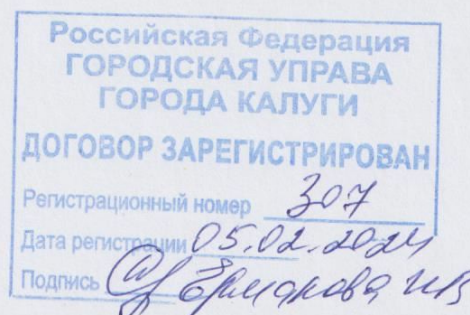 Российская Федерация
ГОРОДСКАЯ УПРАВА
ГОРОДА КАЛУГИ
ДОГОВОР ЗАРЕГИСТРИРОВАН
Регистрационный номер 307
Дата регистрации 05.02.2024
Подпись Ермакова